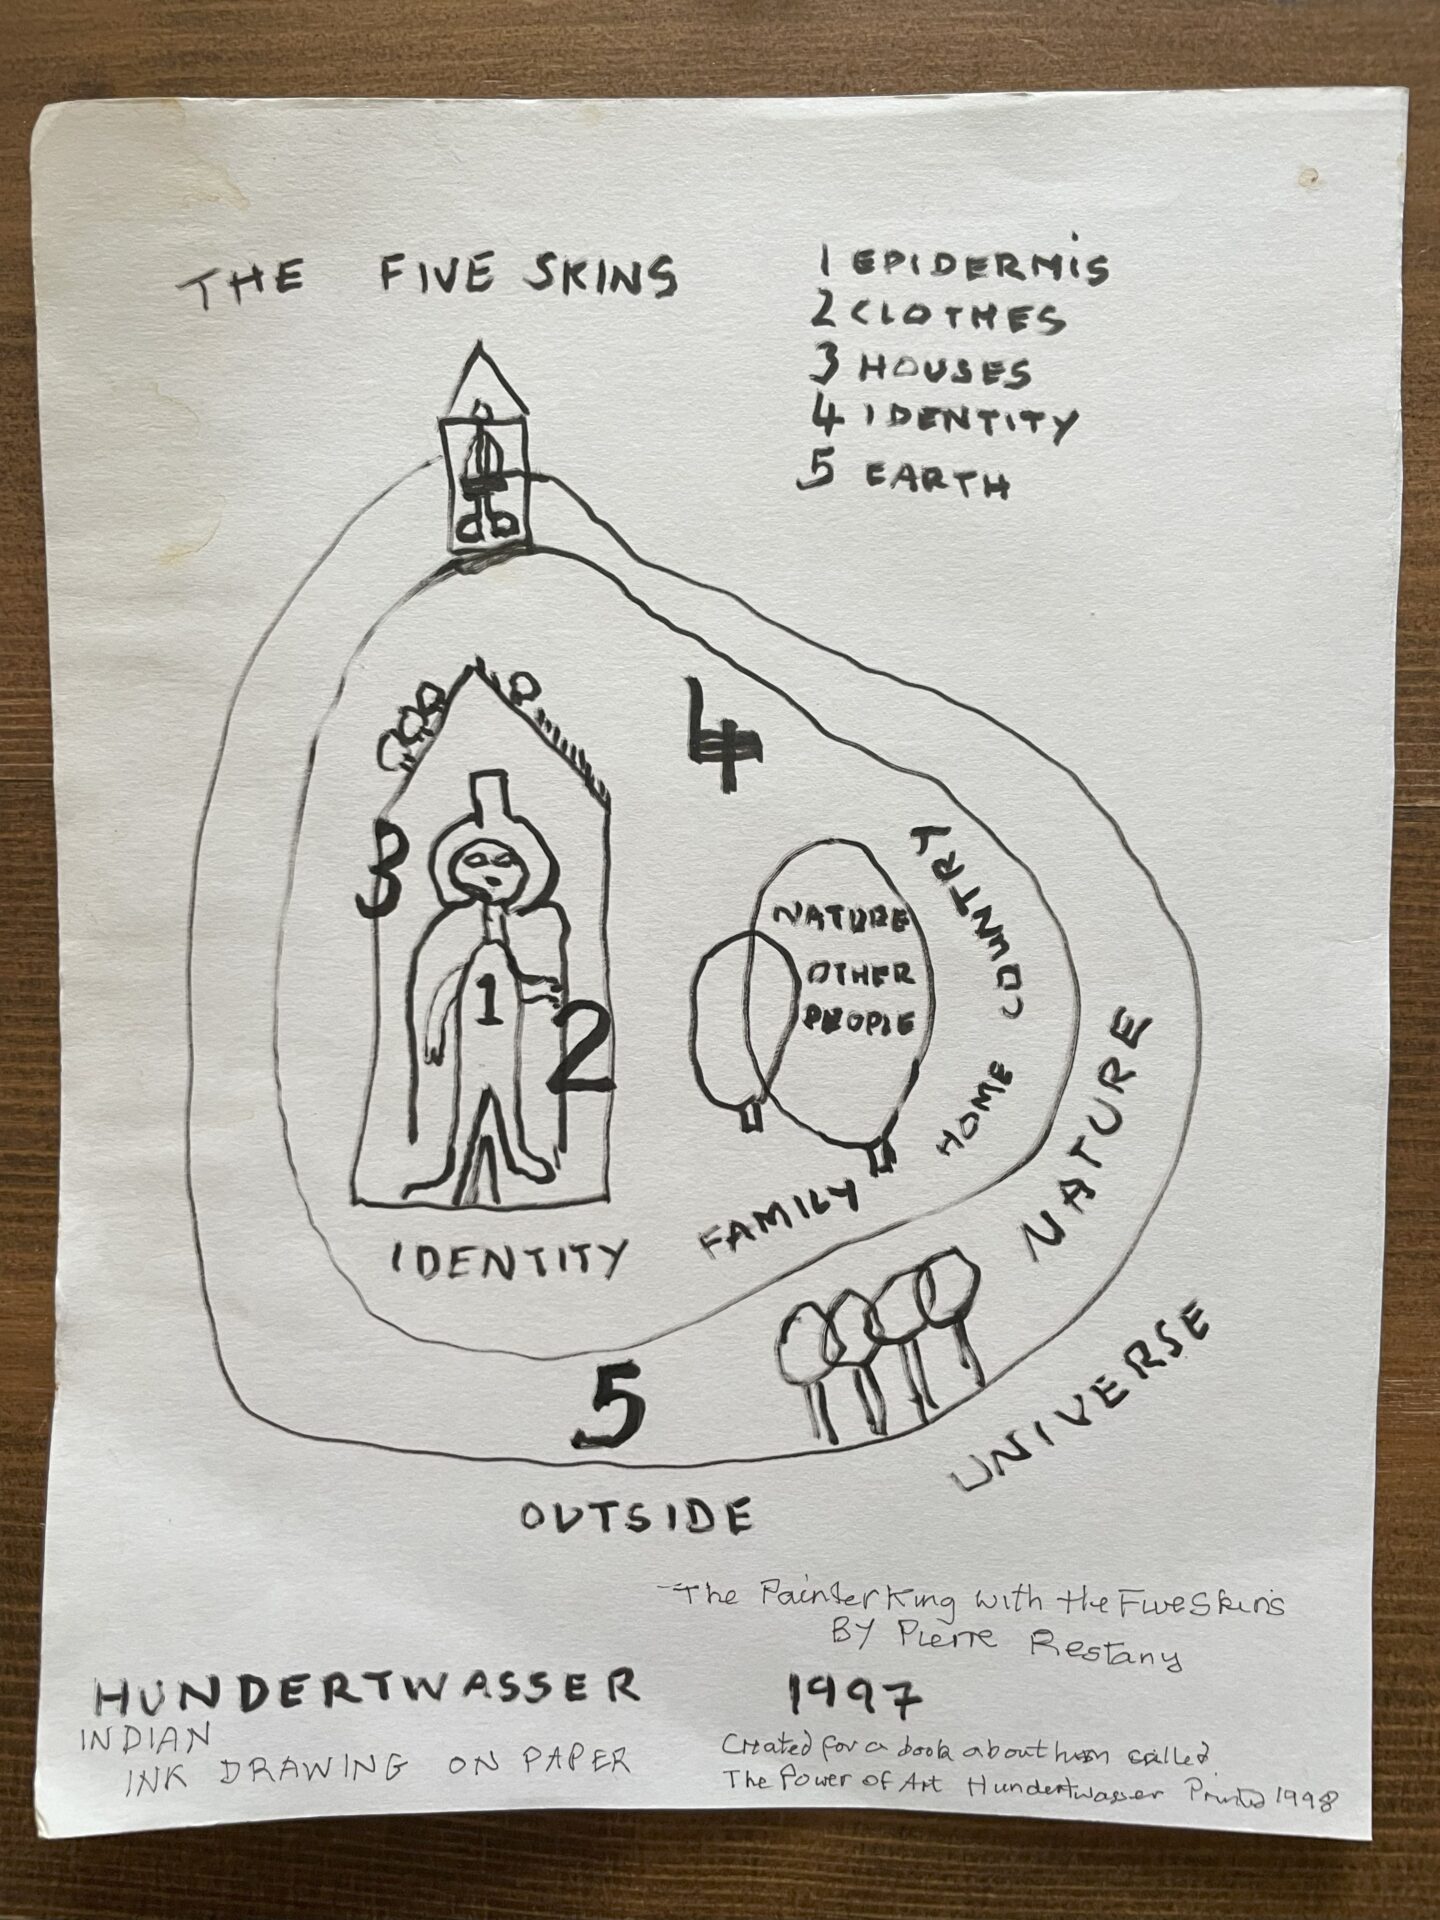 THE FIVE SKINS
1 EPIDERMIS
2 CLOTHES
3 HOUSES
4 IDENTITY
5 EARTH
4
3
1
2
NATURE
OTHER
PEOPLE
HOME COUNTRY
FAMILY
IDENTITY
NATURE
5
UNIVERSE
OUTSIDE
The Painter King with the Five Skins
BY Pierre Restany
HUNDERTWASSER
1997
INDIAN
INK DRAWING ON PAPER
Created for a book about him called
The Power of Art Hundertwasser Printed 1998